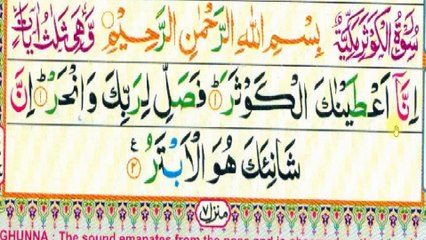 سُوْرَةُ الْكَوْثَرِ مَكِّيَّةٌ بِسْمِ اللهِ الرَّحْمٰنِ الرَّحِيْمِ وَّهِيَ ثَلٰثُ اٰيَاتٍ
اِنَّاۤ اَعْطَيْنٰكَ الْكَوْثَرَ ؕ﴿۱﴾ فَصَلِّ لِرَبِّكَ وَانْحَرْ ؕ﴿۲﴾ اِنَّ
شَانِئَكَ هُوَ الْاَبْتَرُ ﴿۳﴾ ع
منزل ۷
GHUNNA : The sound emanates from the nose and is